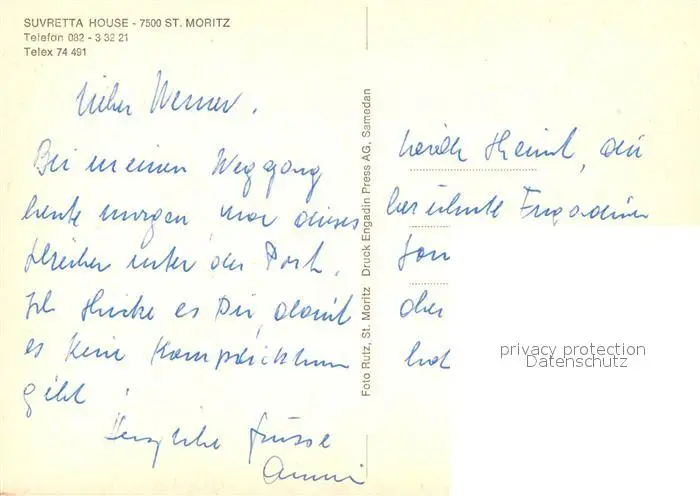 SUVRETTA HOUSE - 7500 ST. MORITZ
Telefon 082 - 3 32 21
Telex 74 491
Lieber Werner,
Bei meinen Weggang
heute morgen, war dieses
Schreiben unter der Post.
Ich schicke es Dir, damit
es keine
gibt!
Herzliche Grüsse
Foto Rutz, St. Moritz Druck Engadin Press AG, Samedan
die
berühmte Engadiner
hat
privacy protection
Datenschutz